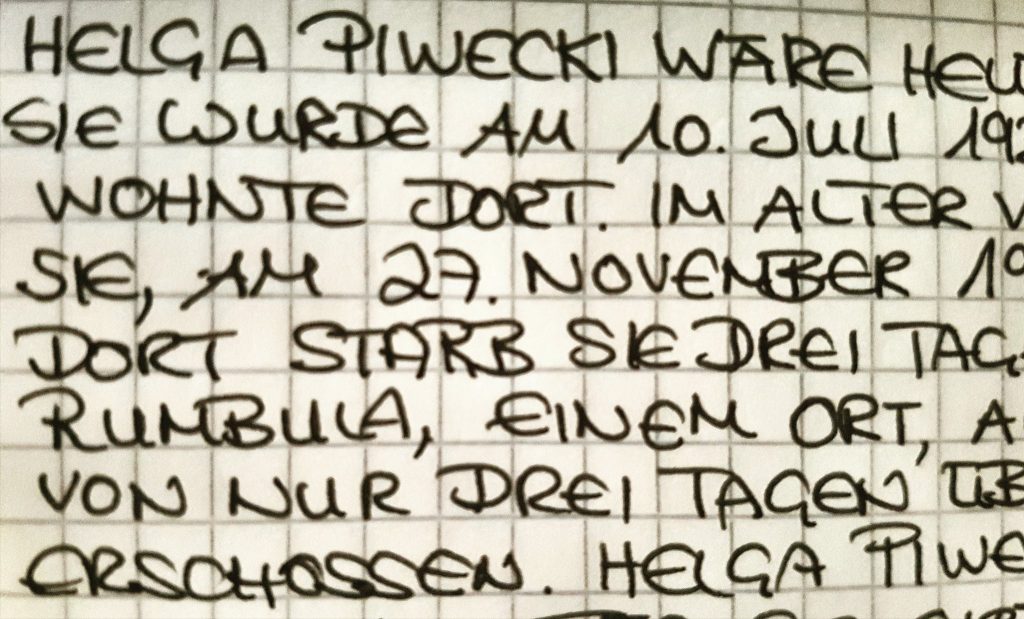 HELGA PIWECKI WÄRE HEU
SIE WURDE AM 10. JULI 192
WOHNTE DORT. IM ALTER V
SIE, AM 27. NOVEMBER 19
DORT STARB SIE DREI TAG
RUMBULA, EINEM ORT, A
VON NUR DREI TAGEN ÜB
ERSCHOSSEN. HELGA PIWE